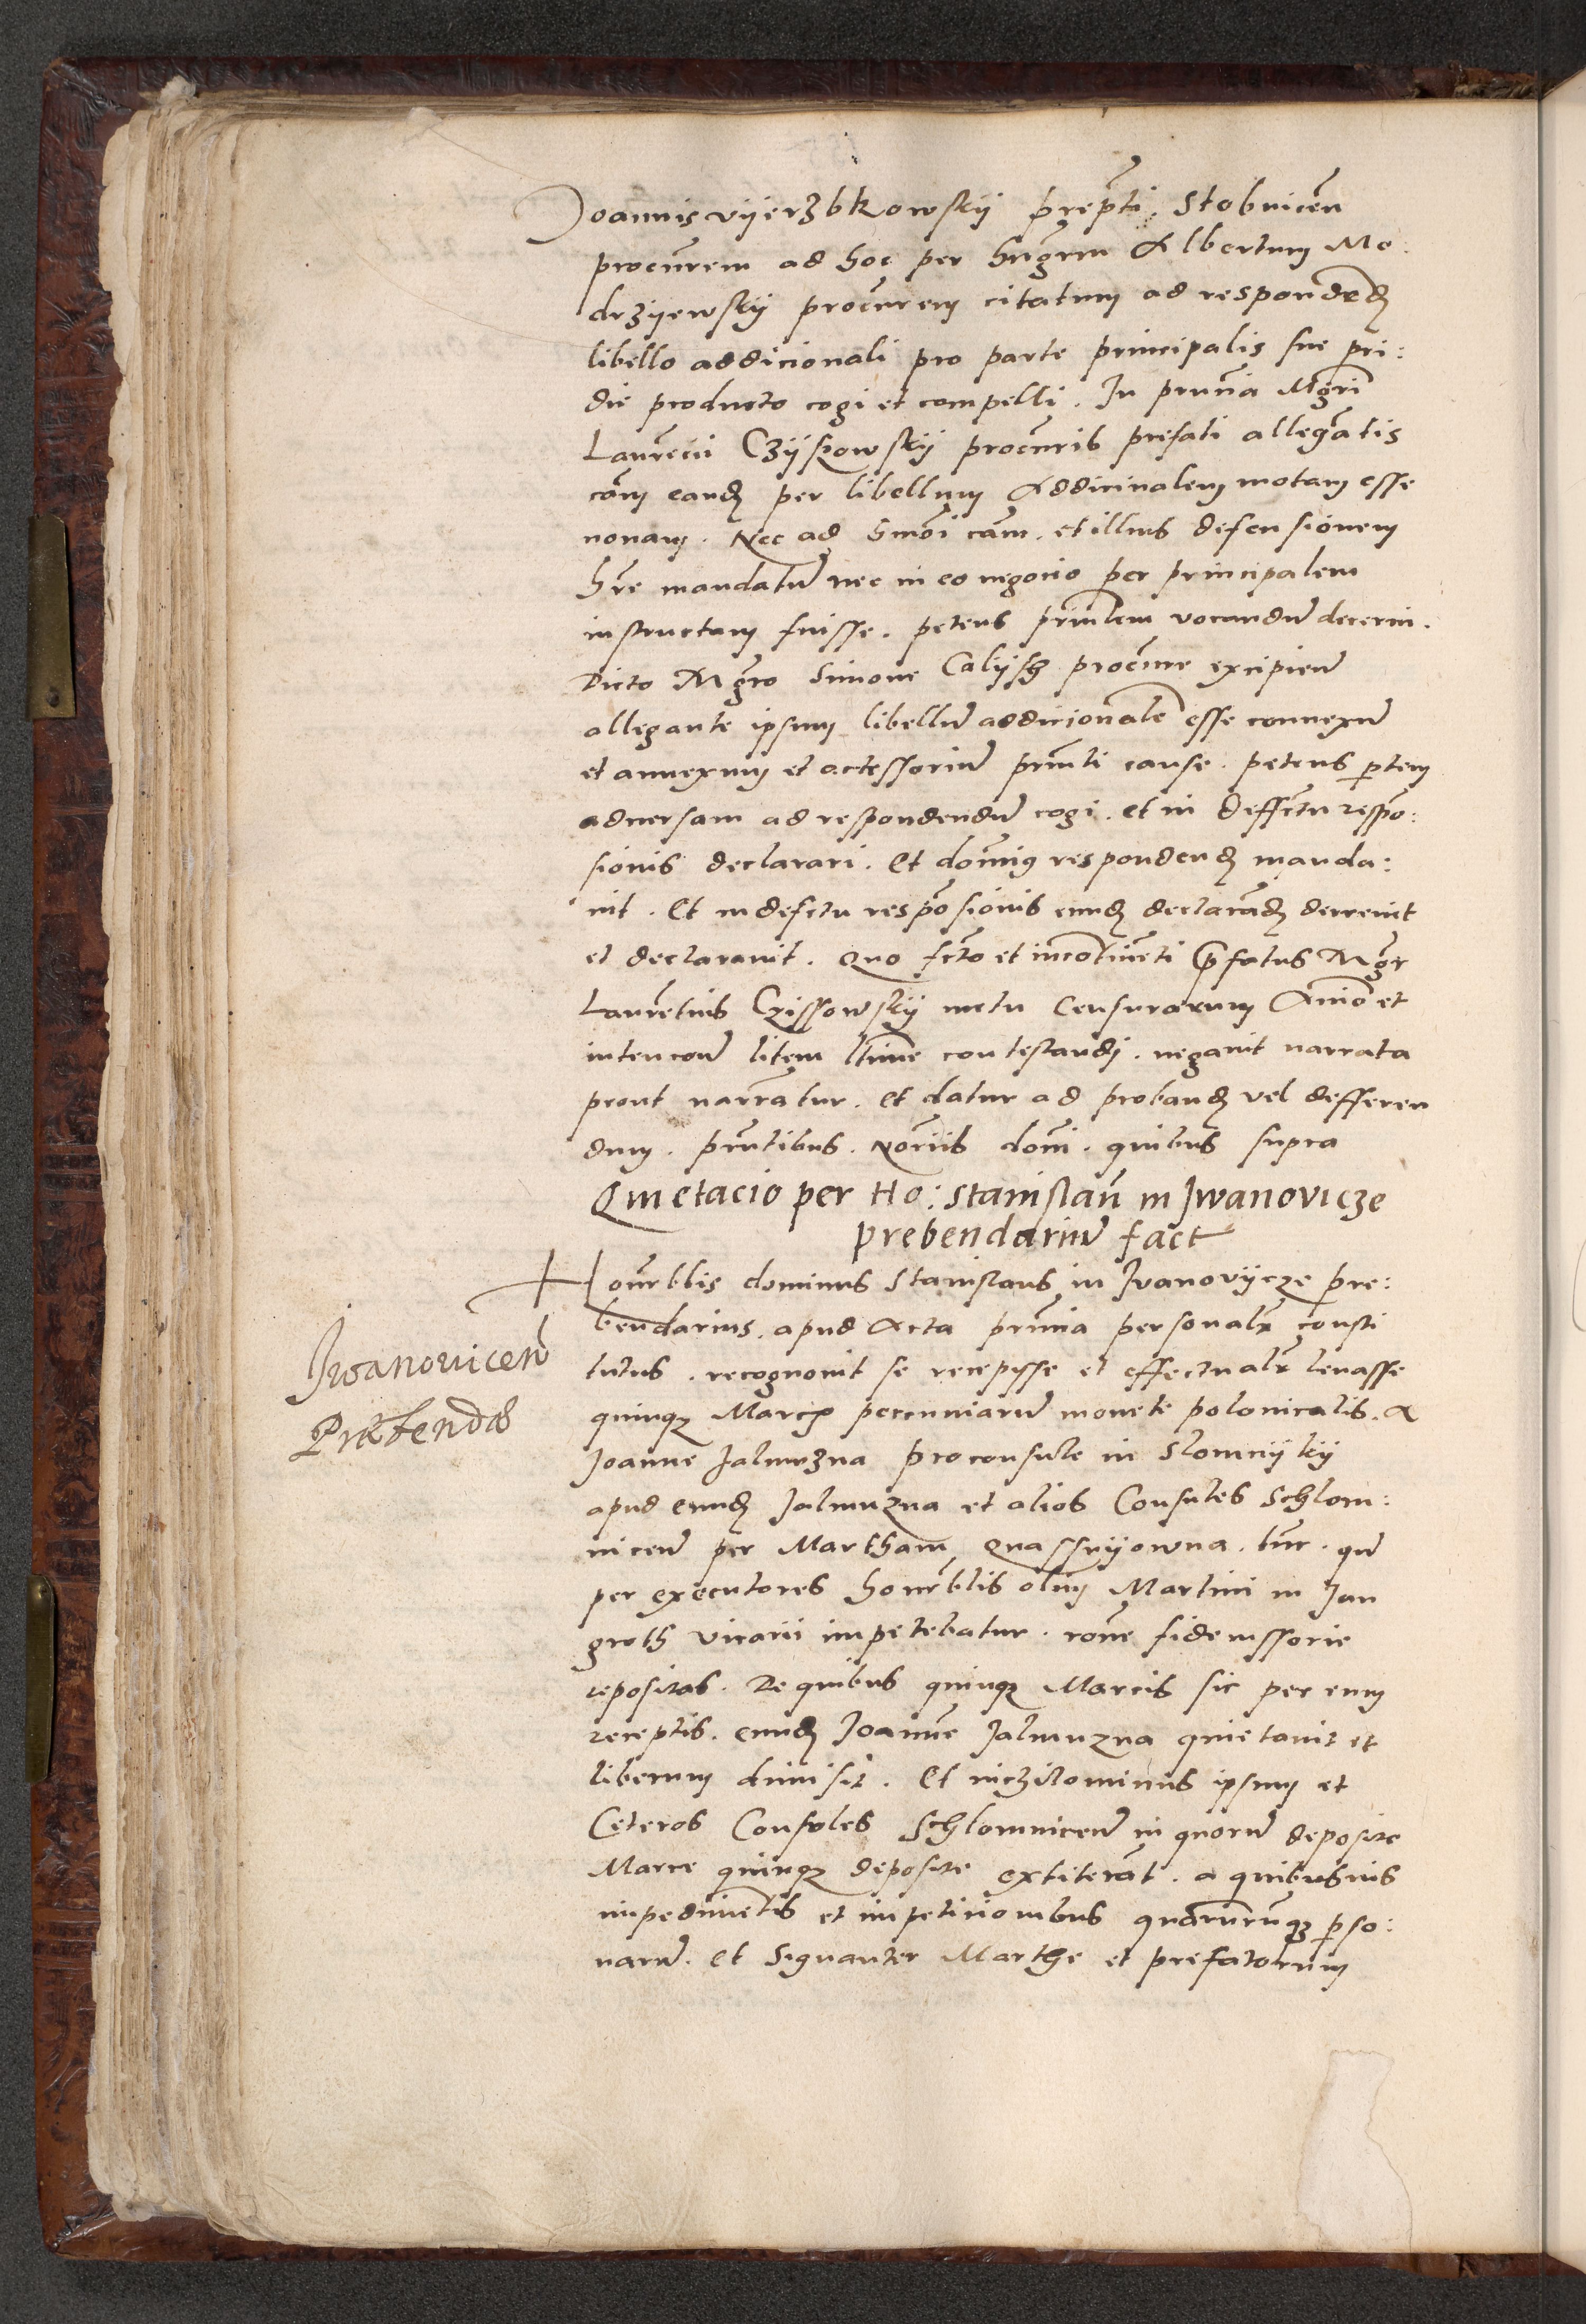 Joannis vyerzbkowsky prepti. Stobnicen
procurem ad hoc per hngrm Albertum Mo:
drzyewsky procurem citatum ad responded
libello addicionali pro parte principalis sue pri:
die producto cogi et compelli. In pruncia Mgri
Laurecii Czyskowsky procuris prefati allegatis
cam eand per libellum Addicinalem motam esse
nouam. Nec ad hmoi cam. et illius defensionem
hre mandatu nec in eo negocio per principalem
instructam fuisse. petens princlem vocandu decerni.
Dicto Mgro Simone Calysch procure excipien
allegante ipsum libellu addicionale esse connexu
et annexum et accessoriu princli cause. petens ptem
aduersam ad respondendu cogi. et in deffectu respo:
sionis declarari. Et domins respondend manda:
uit. Et in defectu resposionis eund declarad decreuit
et declarauit. Quo fcto et incontineti prefatus Mgr
Lauretius Czissowsky metu Censurarum Animo et
intencone litem ltime contestandi. negauit narrata
prout narratur. et datur ad proband vel defferen
dum. prntibus. Noriis domi. quibus supra
Quietacio per Ho: Stanislau in Jwanovicze
prebendariu fact
Honrblis dominus Stanislaus in Jvanovycze pre:
bendarius. apud Acta prncia personalr consti
tutus. recognouit se recepisse et effectualr leuasse
quinqz Marcas peccuniaru monete polonicalis. A
Joanne Jalmuzna proconsule in Slomnyky
apud eund Jalmuzna et alios Consules Schlom:
nicen per Martham Quassnyowna. tunc. qn
per executores honrblis olim Martini in Jan
groth vicarii impetebatur. rone fideiussorie
repositas. De quibus quinqz Marcis sic per eum
receptis. eund Joanne Jalmuzna quietauit et
liberum dimisit. Et nichilominus ipsum et
Ceteros Consules Schlomnicen in quoru deposito
Marce quinqz deposite extiterat. a quibusuis
impedimetis et impeticionibus quarucunqz pso:
naru. et Signanter Marthe et prefatorum
Jwanouicen
Præbendæ